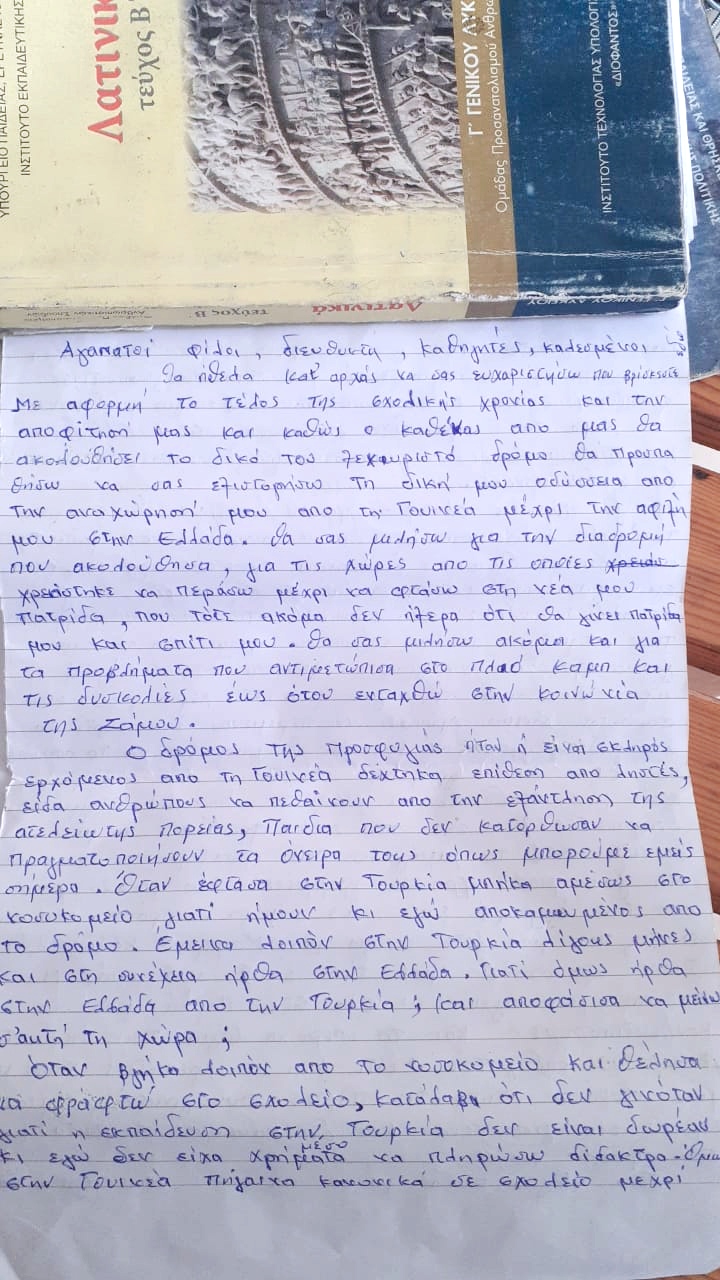 ΥΠΟΥΡΓΕΙΟ ΠΑΙΔΕΙΑΣ, ΕΡΕΥΝΑΣ
ΙΝΣΤΙΤΟΥΤΟ ΕΚΠΑΙΔΕΥΤΙΚΗΣ
Λατινικ
τεύχος Β'
Γ' ΓΕΝΙΚΟΥ ΛΥΚ
Ομάδας Προσανατολισμού Ανθρω
ΙΝΣΤΙΤΟΥΤΟ ΤΕΧΝΟΛΟΓΙΑΣ ΥΠΟΛΟΓΙ
«ΔΙΟΦΑΝΤΟΣ»
ΔΕΙΑΣ ΚΑΙ ΘΡΗ
ΠΟΛΙΤΙΚΗΣ
Λατινικά τεύχος Β'
Γ' ΓΕΝΙΚΟΥ ΛΥΚΕΙΟΥ
Αγαπατοί φίλοι, διευθυντή, καθηγητές, καλεσμένοι
θα ήθελα κατ' αρχάς να σας ευχαριστήσω που βρίσκεστε εδώ
Με αφορμή το τέλος της σχολικής χρονίας και την
αποφίτησή μας και καθώς ο καθένας απο μας θα
ακολουθήσει το δικό του ξεχωριστό δρόμο θα προσπα
θήσω να σας εξιστορήσω τη δική μου οδύσσεια απο
την αναχώρησή μου απο τη Γουινέα μέχρι την αφιξή
μου στην Ελλάδα. θα σας μιλήσω για την διαδρομή
που ακολούθησα, για τις χώρες απο τις οποίες χρειάσ
χρειάστηκε να περάσω μέχρι να φτάσω στη νέα μου
πατρίδα, που τότε ακόμα δεν ήξερα ότι θα γίνει πατρίδα
μου και σπίτι μου. θα σας μιλήσω ακόμα και για
τα προβλήματα που αντιμετώπισα στο παλιό καμπ και
τις δυσκολίες έως ότου ενταχθώ στην κοινωνία
της Σάμου.
Ο δρόμος της προσφυγιάς ήταν ή είναι σκληρός
ερχόμενος απο τη Γουινέα δέχτηκα επίθεση απο ληστές,
είδα ανθρώπους να πεθαίνουν απο την εξάντληση της
ατελείωτης πορείας, Παιδια που δεν κατόρθωσαν να
πραγματοποιήσουν τα όνειρα τους όπως μπορούμε εμείς
σήμερα. Όταν έφτασα στην Τουρκία μπήκα αμέσως στο
νοσοκομείο γιατί ήμουν κι εγώ αποκαμωμένος απο
το δρόμο. Έμεινα λοιπόν στην Τουρκία λίγους μήνες
και στη συνέχεια ήρθα στην Ελλάδα. Γιατί όμως ήρθα
στην Ελλάδα απο την Τουρκία; και αποφάσισα να μείνω
σ'αυτή τη χώρα;
Όταν βγήκα λοιπόν απο το νοσοκομείο και θέλησα
να στο σχολείο, κατάλαβα ότι δεν γινόταν
γιατί η εκπαίδευση στην Τουρκία δεν είναι δωρέαν
κι εγώ δεν είχα χρήματα μέσο να πληρώσω δίδακτρα. Όμω
στην Γουινέα πήγαινα κανονικά σε σχολείο μεχρί